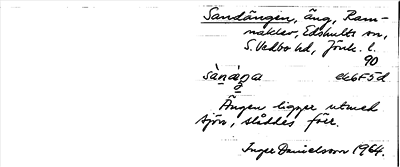 Sandängen, äng, Ram-
naklev, Edshults sn,
S. Vedbo hd, Jönk. l.
90
sànǽŋa ek6F5d
Ängen ligger utmed
sjön, slåddes förr.
Inger Danielsson 1964.